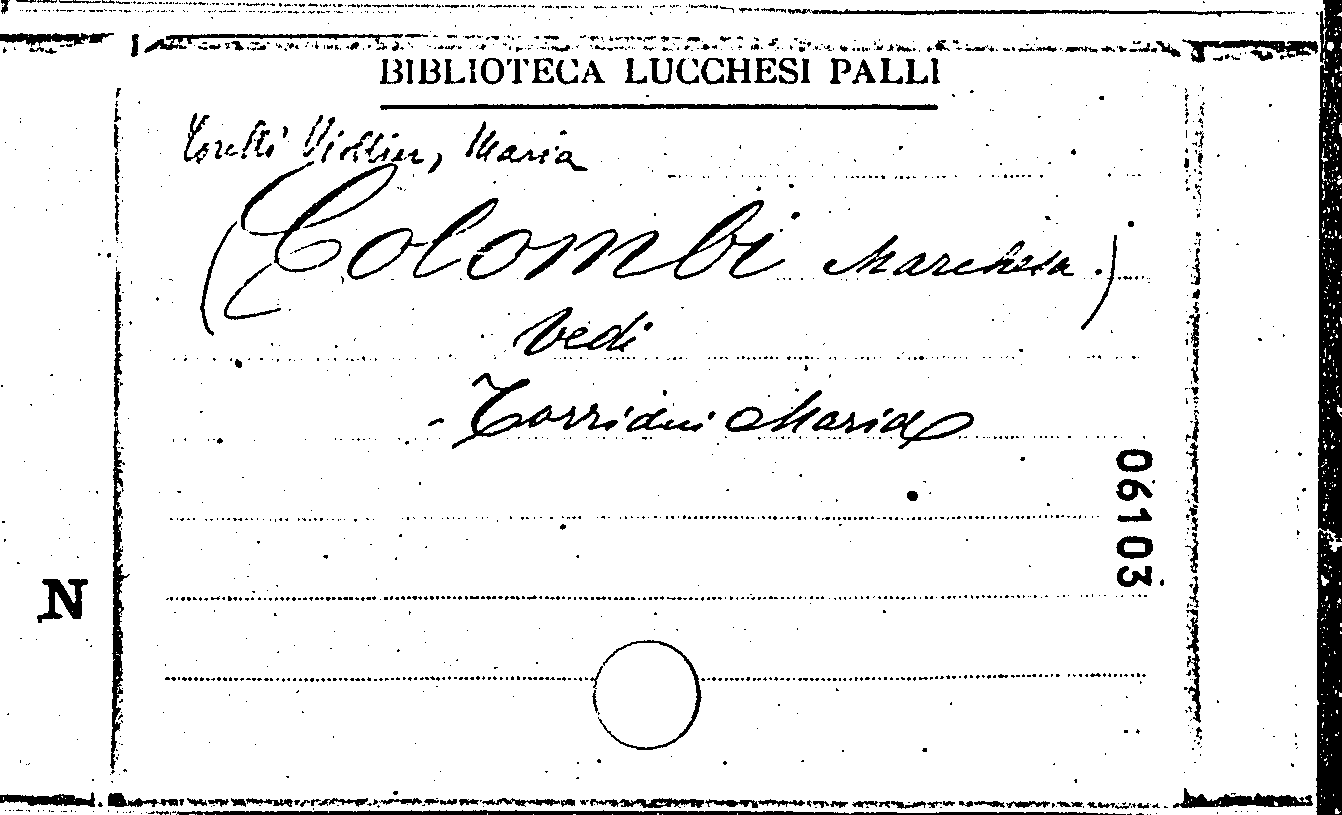 BIBLIOTECA LUCCHESI PALLI
Torelli Viollier, Maria
(Colombi Marchesa.)
Vedi
- Torriani Maria
06103
N